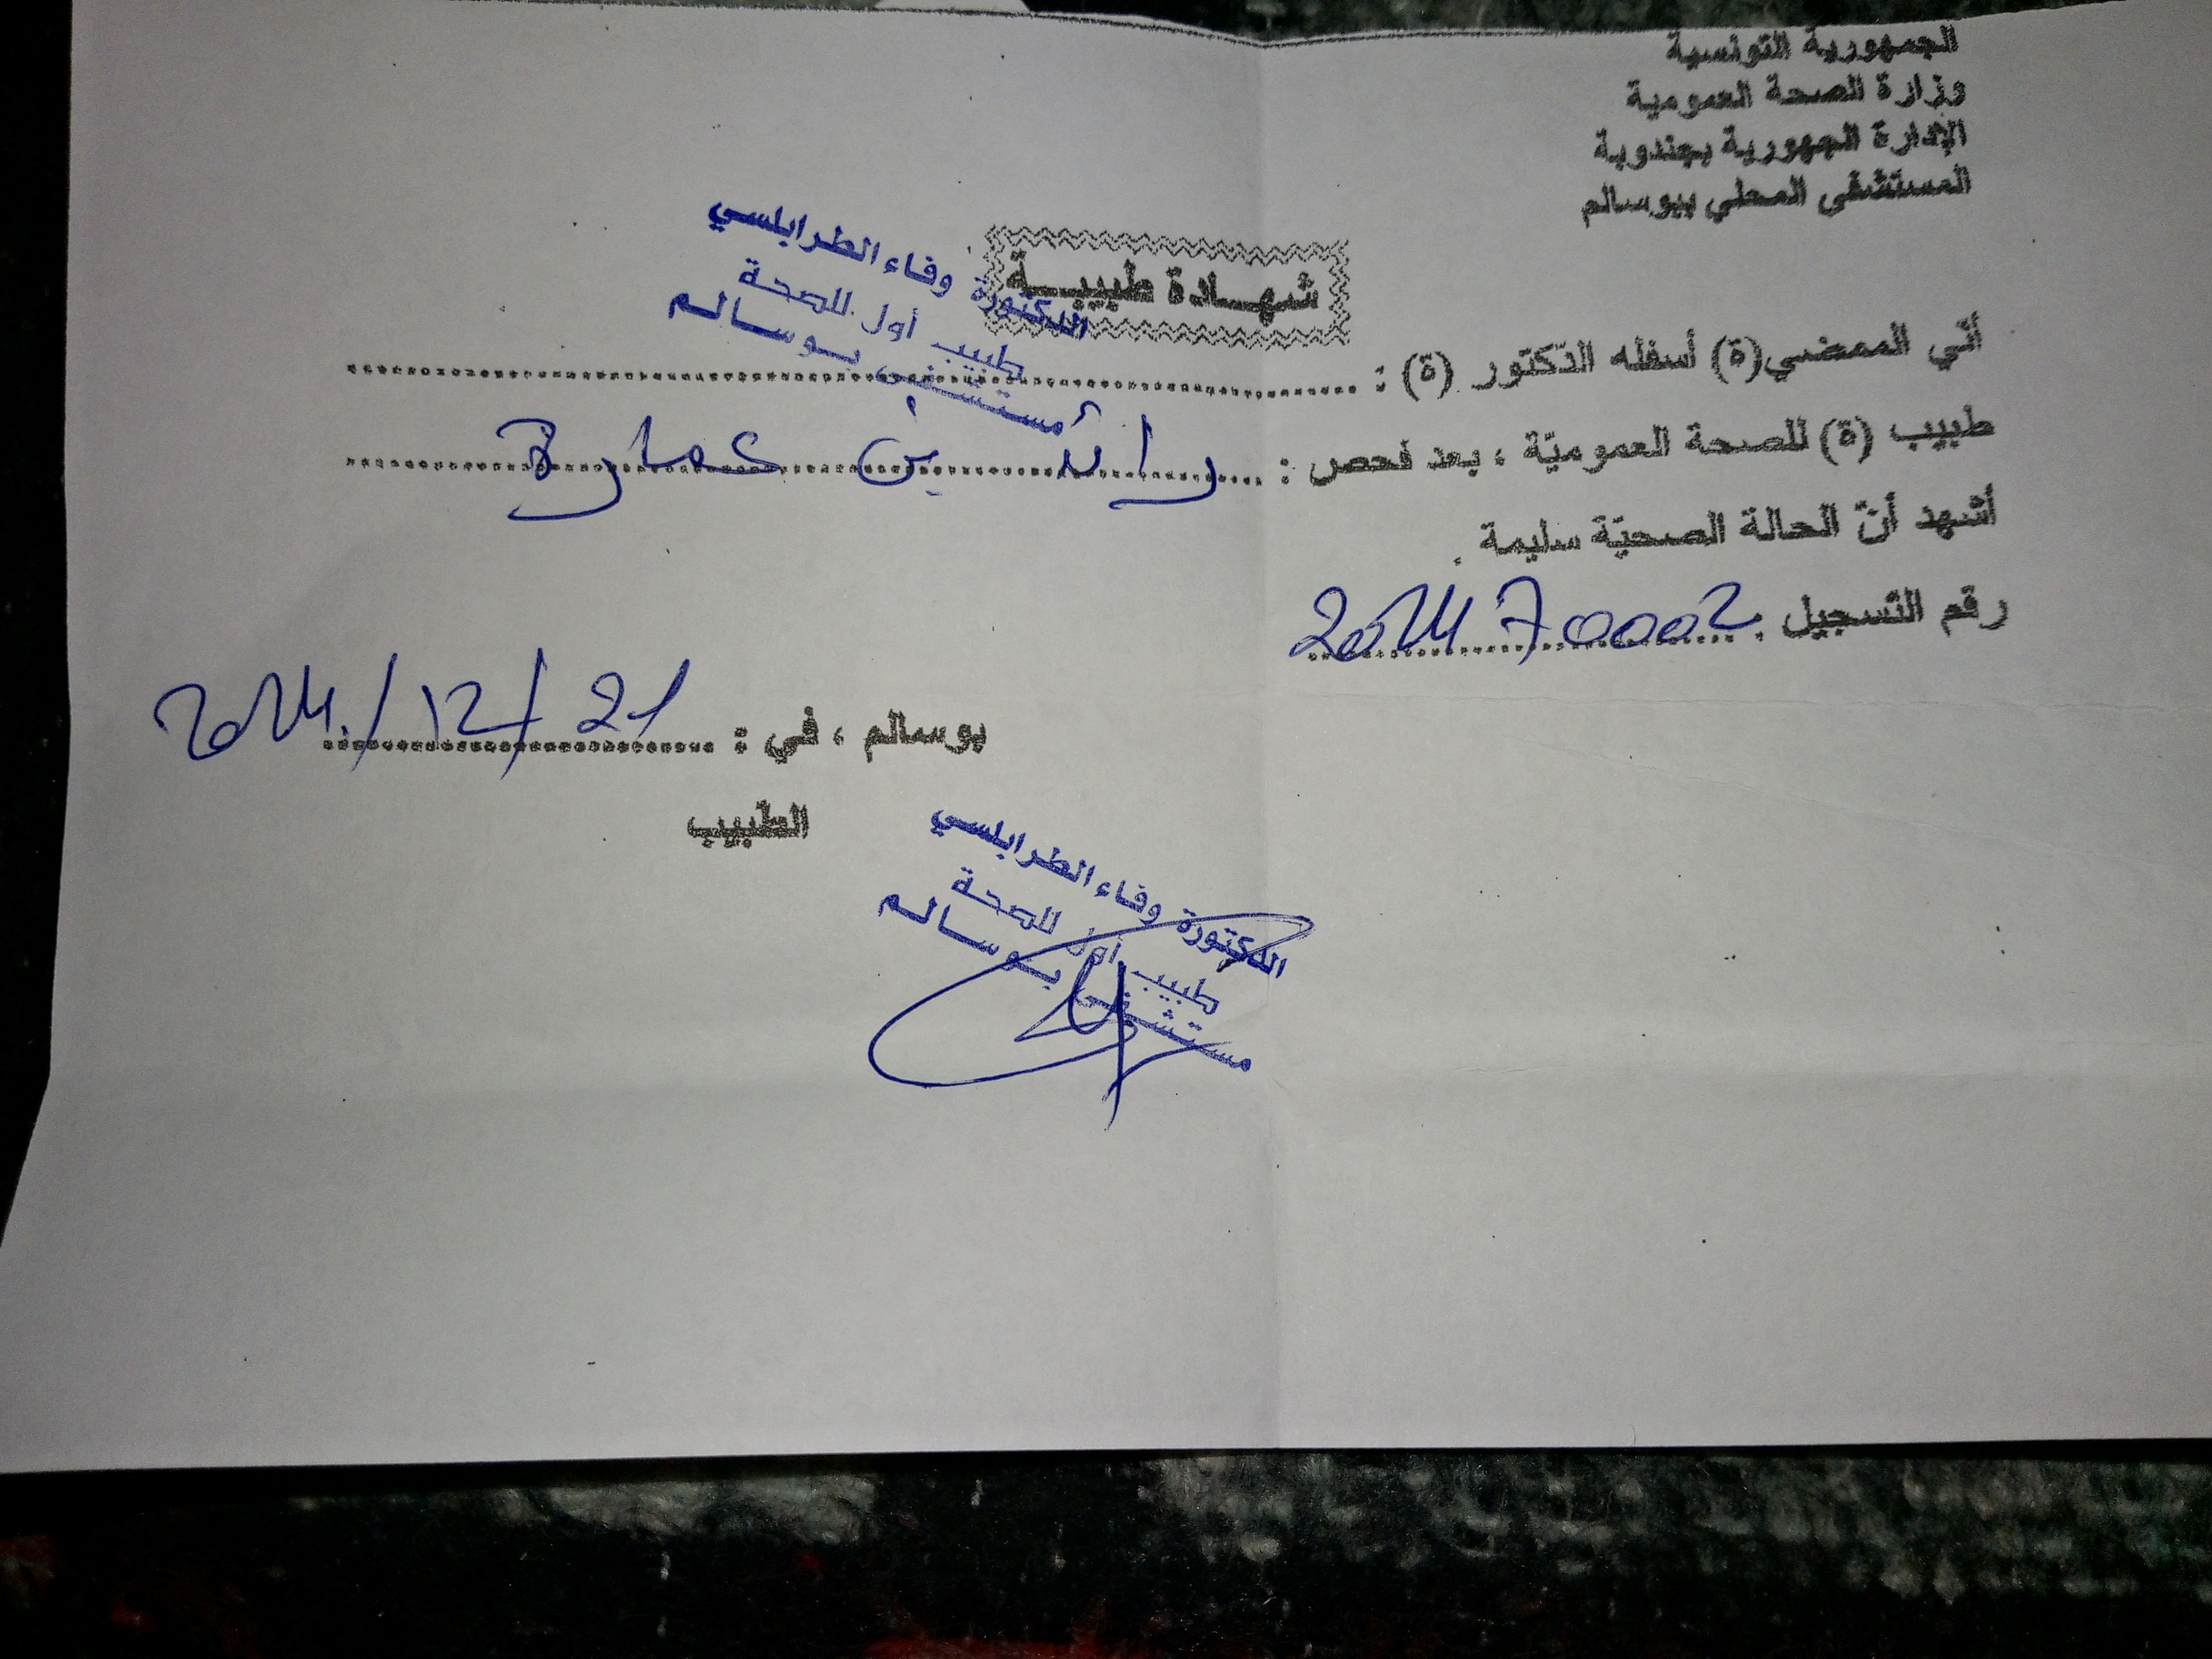 الجمهورية التونسية
وزارة الصحة العمومية
الإدارة الجهورية بجندوبة
المستشفى المحلي ببوسالم
شهادة طبيبة
الدكتورة وفاء الطرابلسي
طبيب أول للصحة
مستشفى بوسالم
أنّي الممضي(ة) أسفله الدّكتور (ة) :
طبيب (ة) للصحة العموميّة ، بعد فحص : رائد بن عمارة
أشهد أنّ الحالة الصحيّة سليمة .
رقم التّسجيل : 202470002
بوسالم ، في : 2024/12/21
الطّبيب
الدكتورة وفاء الطرابلسي
طبيب أول للصحة
مستشفى بوسالم